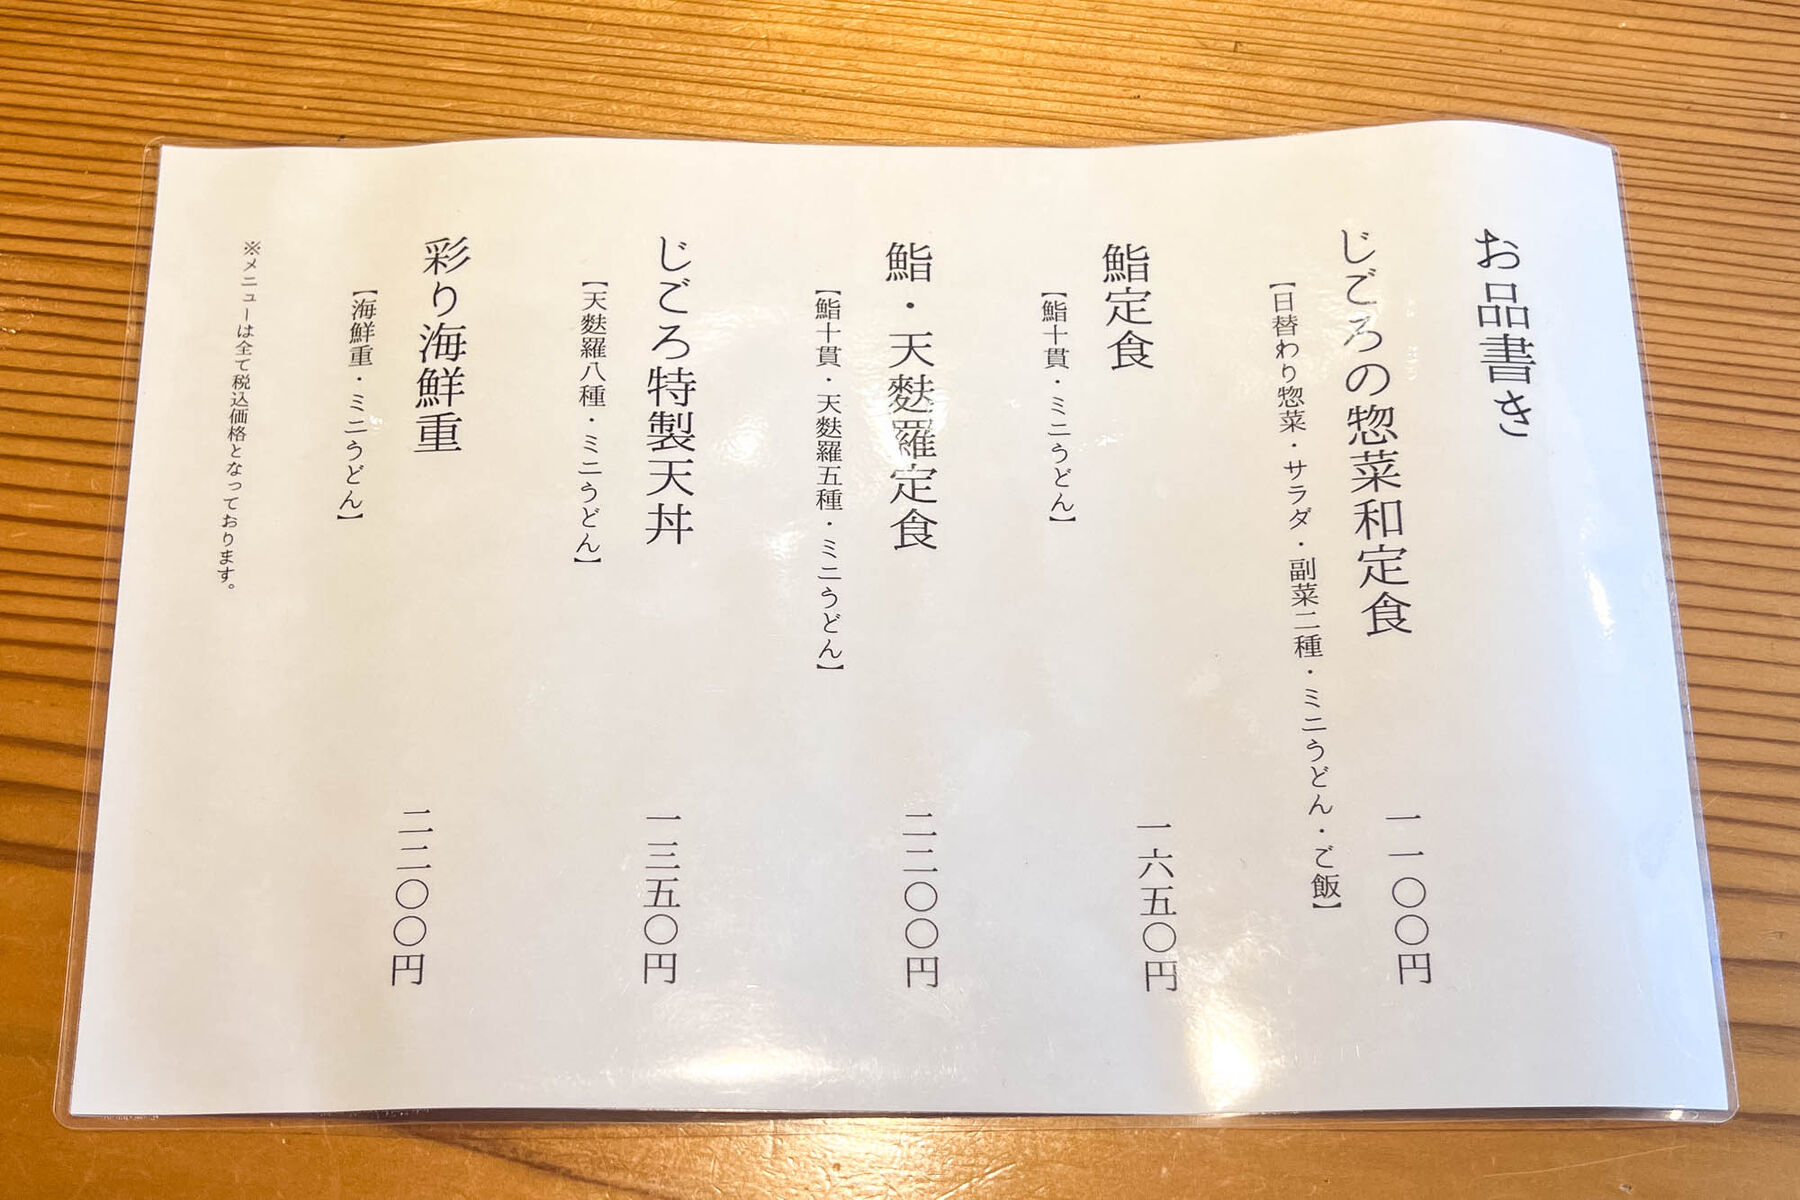 お品書き
じごろの惣菜和定食 一一〇〇円
【日替わり惣菜・サラダ・副菜二種・ミニうどん・ご飯】
鮨定食 一六五〇円
【鮨十貫・ミニうどん】
鮨・天麩羅定食 二二〇〇円
【鮨十貫・天麩羅五種・ミニうどん】
じごろ特製天丼 一三五〇円
【天麩羅八種・ミニうどん】
彩り海鮮重 二二〇〇円
【海鮮重・ミニうどん】
※メニューは全て税込価格となっております。